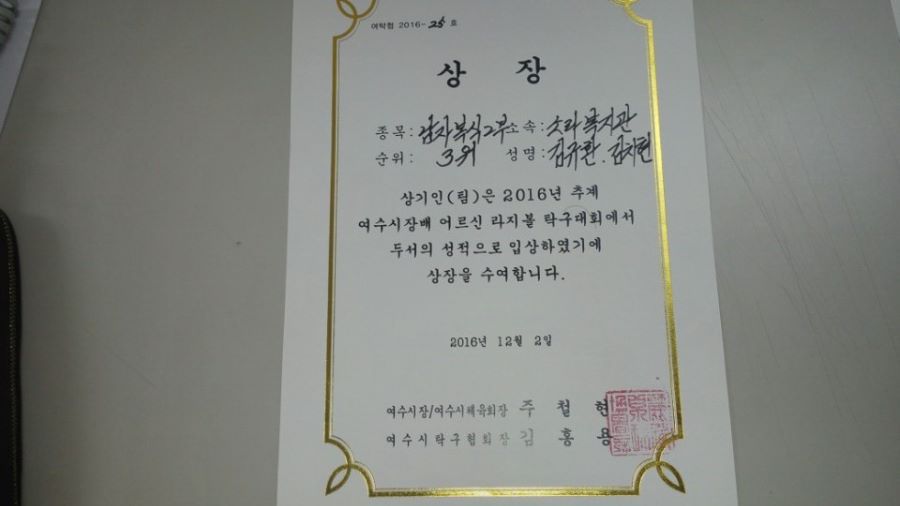 여탁협 2016-25 호
상 장
종목: 남자복식2부 소속: 소라복지관
순위: 3위 성명: 김규환. 김지현
상기인(팀)은 2016년 추계
여수시장배 어르신 라지볼 탁구대회에서
두서의 성적으로 입상하였기에
상장을 수여합니다.
2016년 12월 2일
여수시장/여수시체육회장 주 철 현
여수시탁구협회장 김 홍 용